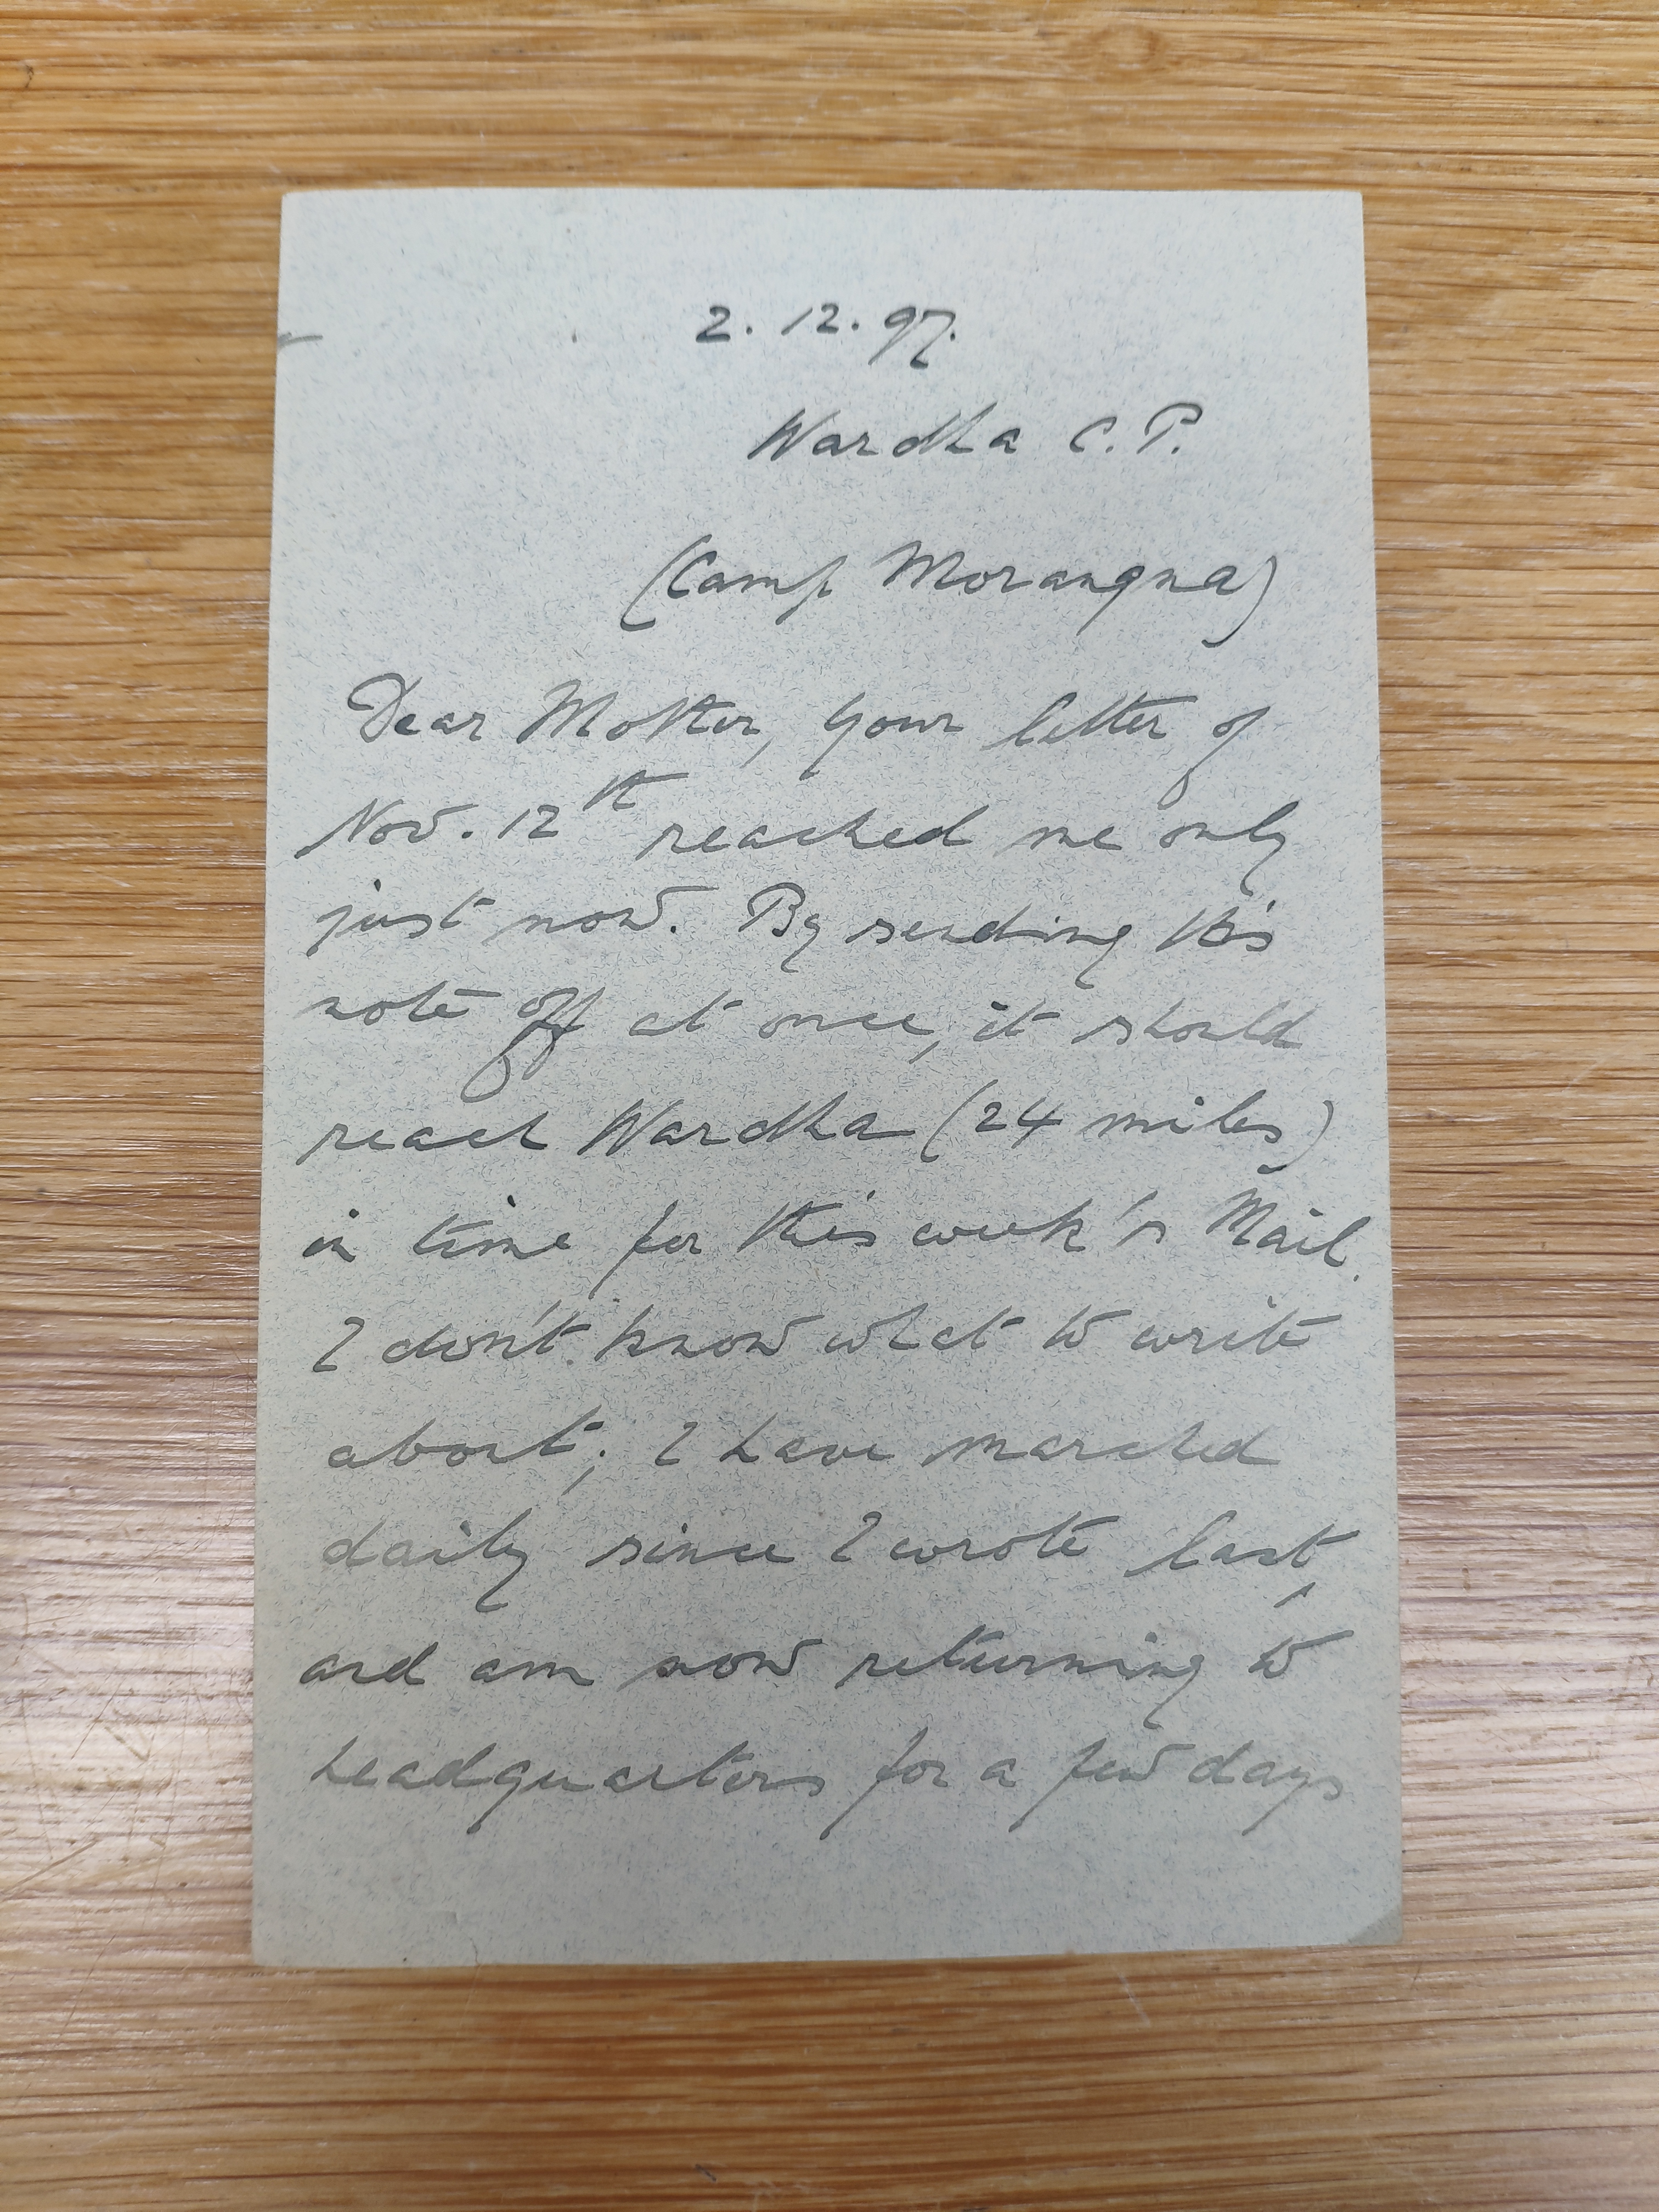 2. 12. 97.
Wardha C. P.
(Camp Morangna)
Dear Mother, Your letter of
Nov. 12th reached me only
just now. By sending this
note off at once, it should
reach Wardha (24 miles)
in time for this week's Mail.
I don't know what to write
about; I have marched
daily since I wrote last,
and am now returning to
headquarters for a few days